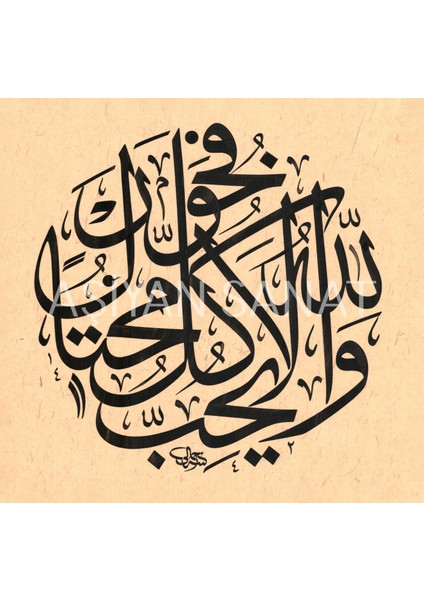 والله لا يحب كل مختال فخور
ASİYAN SANAT